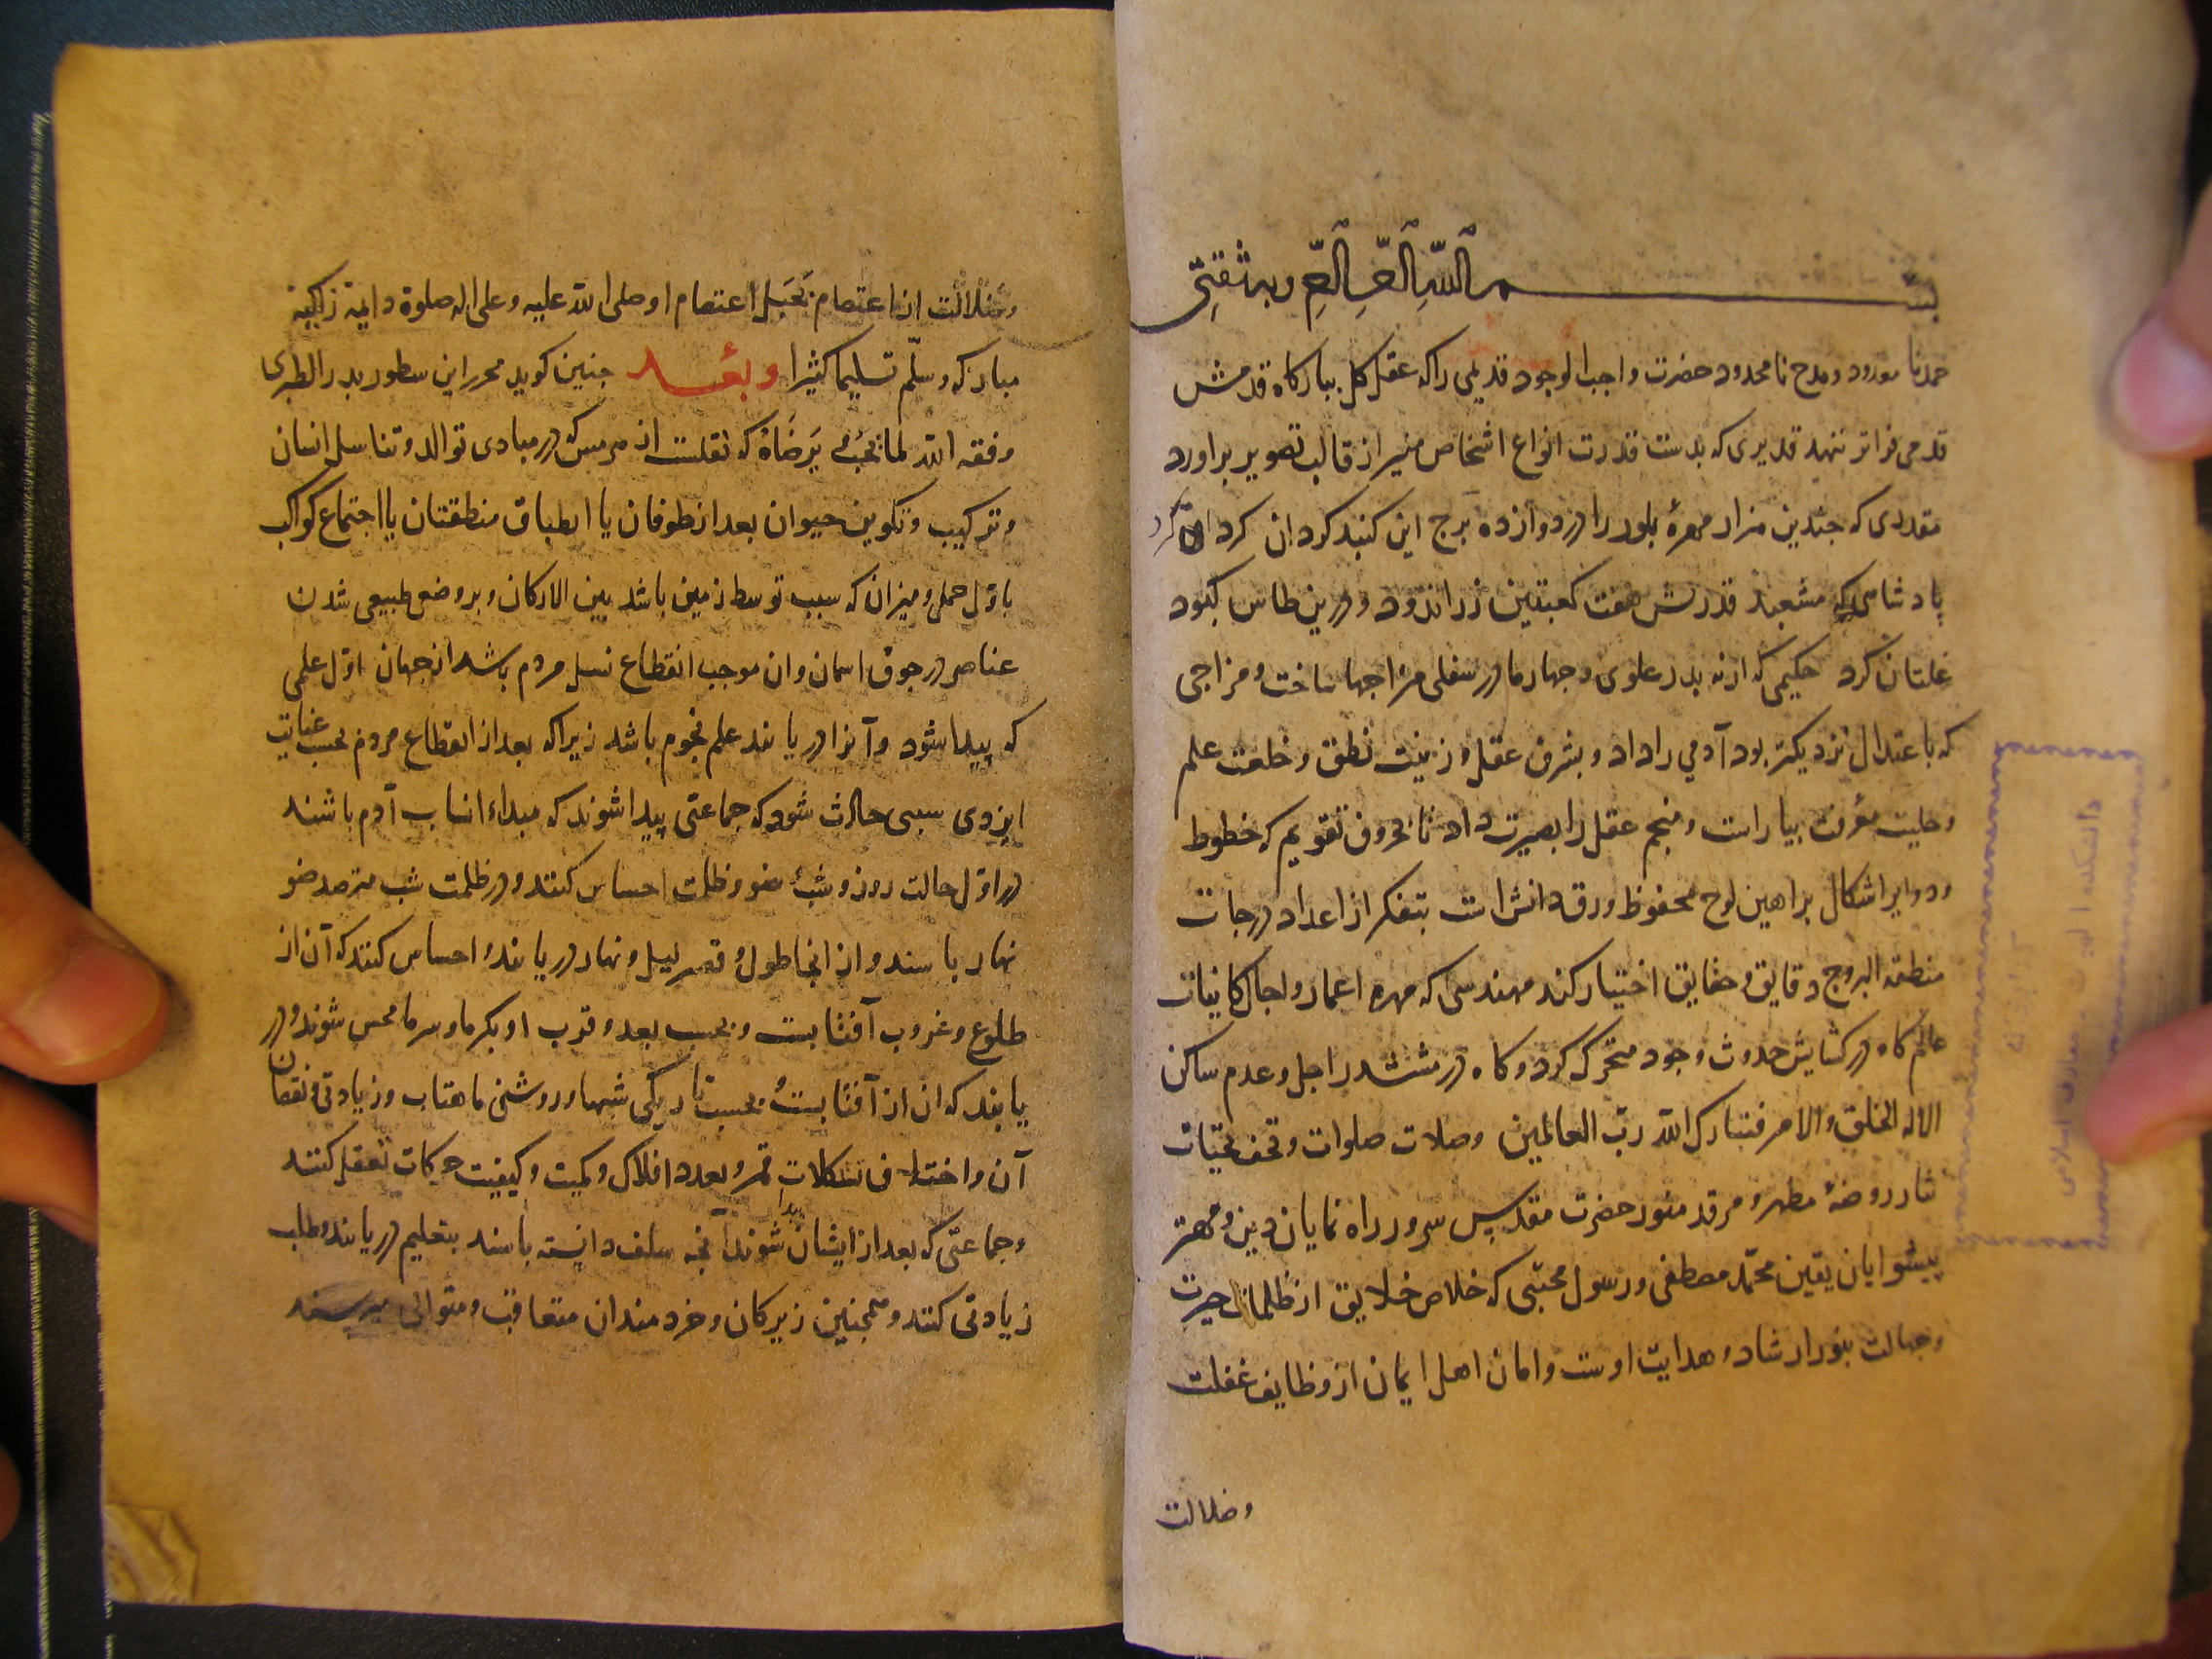 بسم الله الرحمن الرحیم وبه ثقتی
حمد نا معدود و مدح نا محدود حضرت واجب الوجود قدیمی را که عقل کل ببارگاه قدمش
قدمی فراتر ننهد قدیری که بدست قدرت انواع اشخاص منیر از قالب تصویر براورد
مقدری که جندین هزار مهرهٔ بلور را در دوازده برج این کنبد کردان کرد
پادشاهی که مشعبد قدرتش هفت کعبتین زر اندود درین طاس کبود
غلتان کرد حکیمی که از نه پدر علوی و جهار مادر سفلی مزاجها ساخت و مزاجی
که باعتدال نزدیکتر بود آدمی را داد و بشرف عقل و زینت نطق و خلعت علم
و حلیت معرفت بیاراست و منجم عقل را بصیرت داد تا بحروف تقویم که خطوط
و دوایر اشکال براهین لوح محفوظ ورق دانش است بتفکر از اعداد درجات
منطقه البروج دقایق و حقایق اختیار کند مهندسی که مهره اعمار و اجال کاینات
عالم کاه در کشایش حدوث وجود متحرک کرد و کاه در ششدر اجل و عدم ساکن
الاله الخلق والامر فتبارک الله رب العالمین وصلات صلوات و تحف تحیّات
نثار روضهٔ مطهر و مرقد منور حضرت مقدس سرور راه نمایان دین و مهتر
پیشوایان یقین محمّد مصطفی و رسول مجتبی که خلاص خلایق از ظلمات حیرت
و جهالت بنور ارشاد و هدایت اوست و امان اهل ایمان از وظایف غفلت
وضلالت
وضلالت از اعتصام بحَبل اعتصام او صلی الله علیه وعلی اله صلوة دایمة زاکیة
مبارکه وسلّم تسلیما کثیرا وبعد جنین کوید محرر این سطور بدر الطبری
وفقه الله لما یُحبُّ و یَرضَاهُ که نقلست از هرمس که در مبادی توالد و تناسل انسان
و ترکیب و تکوین حیوان بعد از طوفان یا انطباق منطقتان یا اجتماع کواکب
باوّل حمل و میزان که سبب توسط زمین باشد بین الارکان و بر وضعی طبیعی شدن
عناصر در جوف اسمان و ان موجب انقطاع نسل مردم باشد از جهان اوّل علمی
که پیدا شود و آنرا دریابند علم نجوم باشد زیرا که بعد از انقطاع مردم بحسب عنایت
ایزدی سببی حادث شود که جماعتی پیدا شوند که مبداء انساب آدم باشند
در اوّل حالت روز و شب ضوء و ظلمت احساس کنند و در ظلمت شب مترصد ضو
نهار باسند و از انجا طول و قصر لیل و نهار دریابند و احساس کنند که آن از
طلوع و غروب آفتابست و بحسب بعد و قرب او بکرما و سرما محس شوند و در
یابند که ان از آفتابست و بحسب تاریکی شبها و روشنی ماهتاب و زیادتی و نقصان
آن و اختلاف تشکلات قمر و بعدد افلاک و کمیت و کیفیت حرکات تعقل کنند
و جماعتی که بعد از ایشان پیدا شوند آنچه سلف دانسته باسند بتعلیم دریابند و طلب
زیادتی کنند و همجنین زیرکان و خردمندان متعاقب و متوالی میرسند